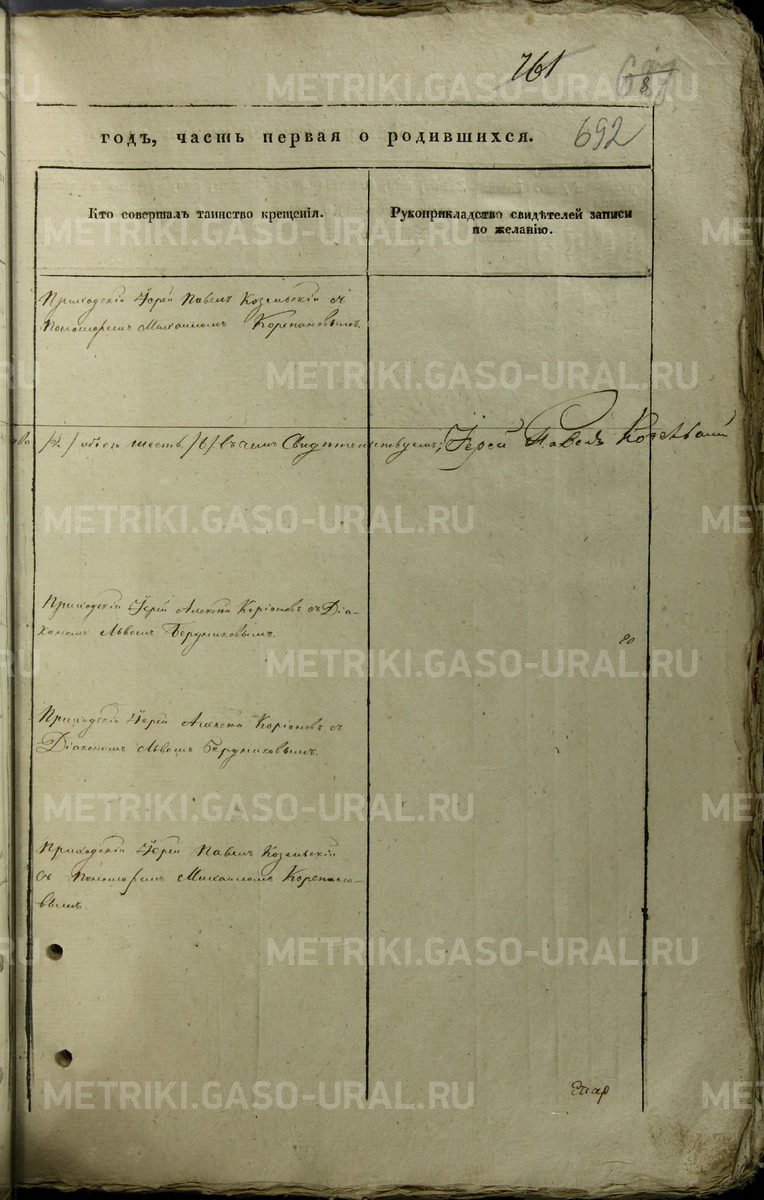 761
692
годъ, часть первая о родившихся.
Кто совершалъ таинство крещенія.
Рукоприкладство свидѣтелей записи
по желанію.
Приходскій Іерей Павелъ Козельскій съ
Пономаремъ Михаиломъ Корепановымъ.
/2/ обоего шесть /6/ въ чемъ Свидѣтельствуемъ; Іерей Павелъ Козельскій
Приходскій Іерей Алексѣй Коріоновъ съ Діа-
кономъ Львомъ
Приходскій Іерей Алексѣй Коріоновъ съ
Діакономъ Львомъ
Приходскій Іерей Павелъ Козельскій
съ Пономаремъ Михаиломъ Корепано-
вымъ.
METRIKI.GASO-URAL.RU